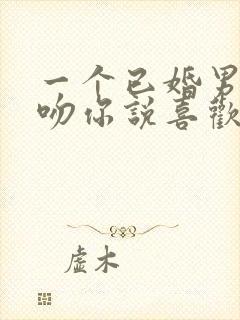 一个已婚男
吻你説喜歡
虚木